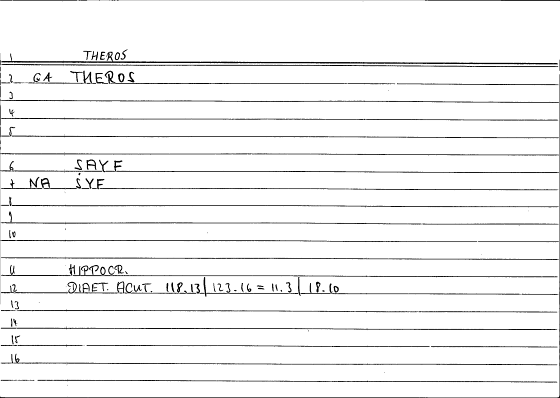 1 THEROS
2 GA THEROS
3
4
5
6 SAYF
7 NA ṢYF
8
9
10
11 HIPPOCR.
12 DIAET. ACUT. 118.13| 123-16 = 11.3| 18.10
13
14
15
16